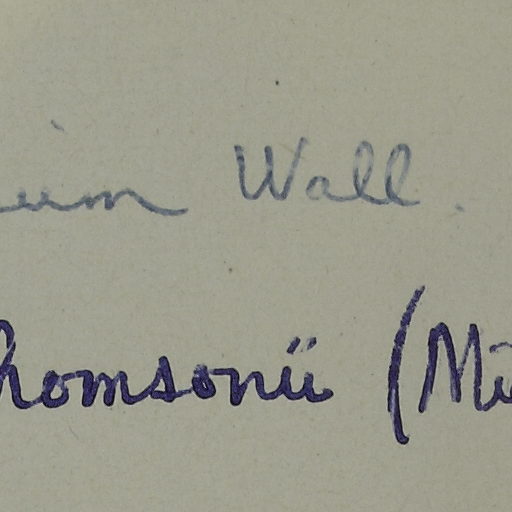 ium Wall.
homsonii (Mi